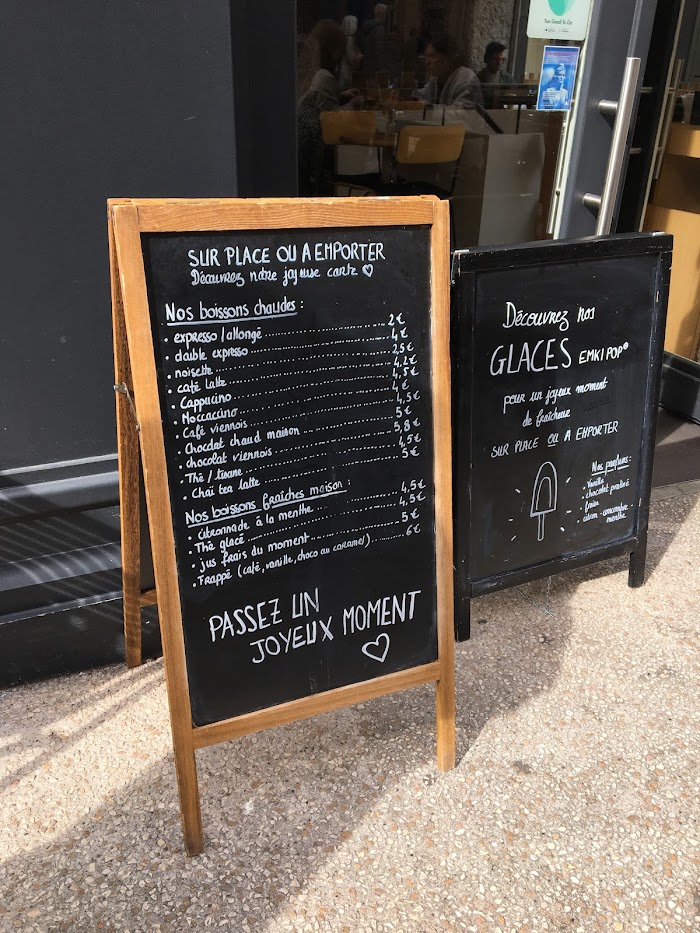 Too Good To Go
SUR PLACE OU A EMPORTER
Découvrez notre joyeuse carte ♡
Nos boissons chaudes :
• expresso / allongé ........ 2€
• double expresso ........ 4€
• noisette ........ 2,5€
• café latte ........ 4,2€
• Cappucino ........ 4,5€
• Moccaccino ........ 4€
• Café viennois ........ 4,5€
• Chocolat chaud maison ........ 5€
• chocolat viennois ........ 5,8€
• Thé / tisane ........ 4,5€
• Chaï tea latte ........ 5€
Nos boissons fraîches maison :
• citronnade à la menthe ........ 4,5€
• Thé glacé ........ 4,5€
• jus frais du moment ........ 5€
• Frappé (café, vanille, choco ou caramel) ........ 6€
PASSEZ UN
JOYEUX MOMENT
♡
Découvrez nos
GLACES EMKI POP®
pour un joyeux moment
de fraîcheur
SUR PLACE OU A EMPORTER
Nos parfums :
• Vanille
• chocolat praliné
• fraise
• citron - concombre
menthe